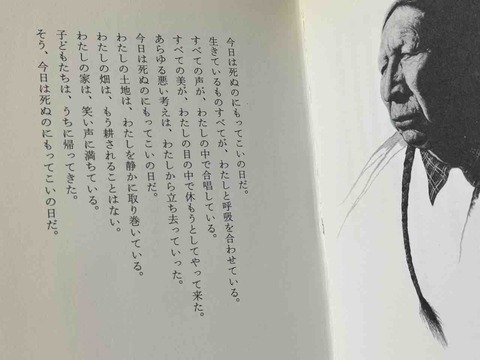 今日は死ぬのにもってこいの日だ。
生きているものすべてが、わたしと呼吸を合わせている。
すべての声が、わたしの中で合唱している。
すべての美が、わたしの目の中で休もうとしてやって来た。
あらゆる悪い考えは、わたしから立ち去っていった。
今日は死ぬのにもってこいの日だ。
わたしの土地は、わたしを静かに取り巻いている。
わたしの畑は、もう耕されることはない。
わたしの家は、笑い声に満ちている。
子どもたちは、うちに帰ってきた。
そう、今日は死ぬのにもってこいの日だ。